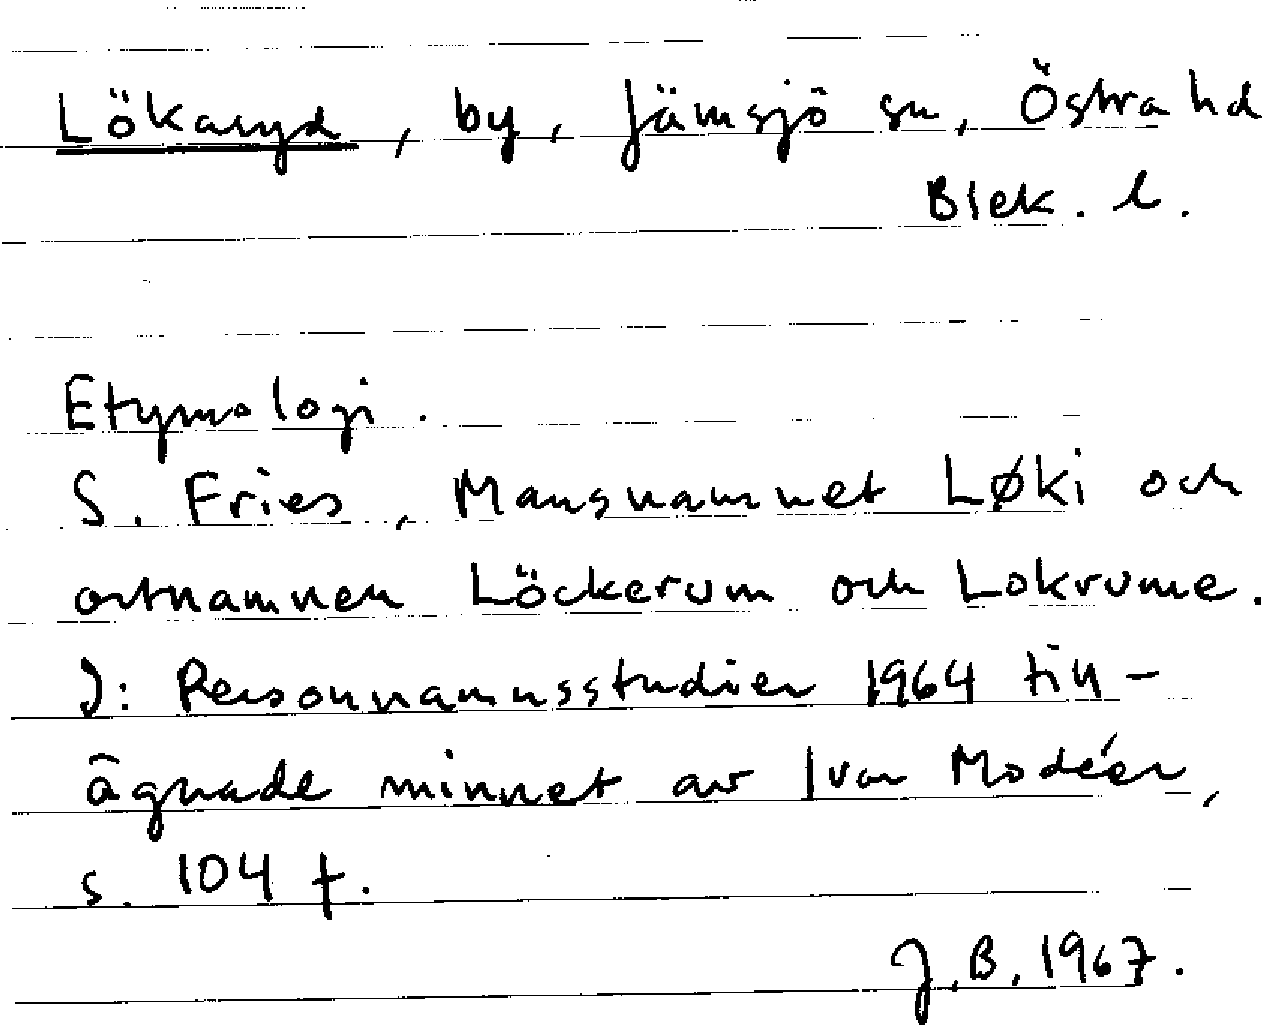 Lökaryd, by, Jämsjö sn, Östra hd
Blek. l.
Etymologi.
S. Fries, Mansnamnet Løki och
ortnamnen Löckerum och Lokrume.
I: Personnamnsstudier 1964 till-
ägnade minnet av Ivar Modéer,
s. 104 f.
J.B. 1967.